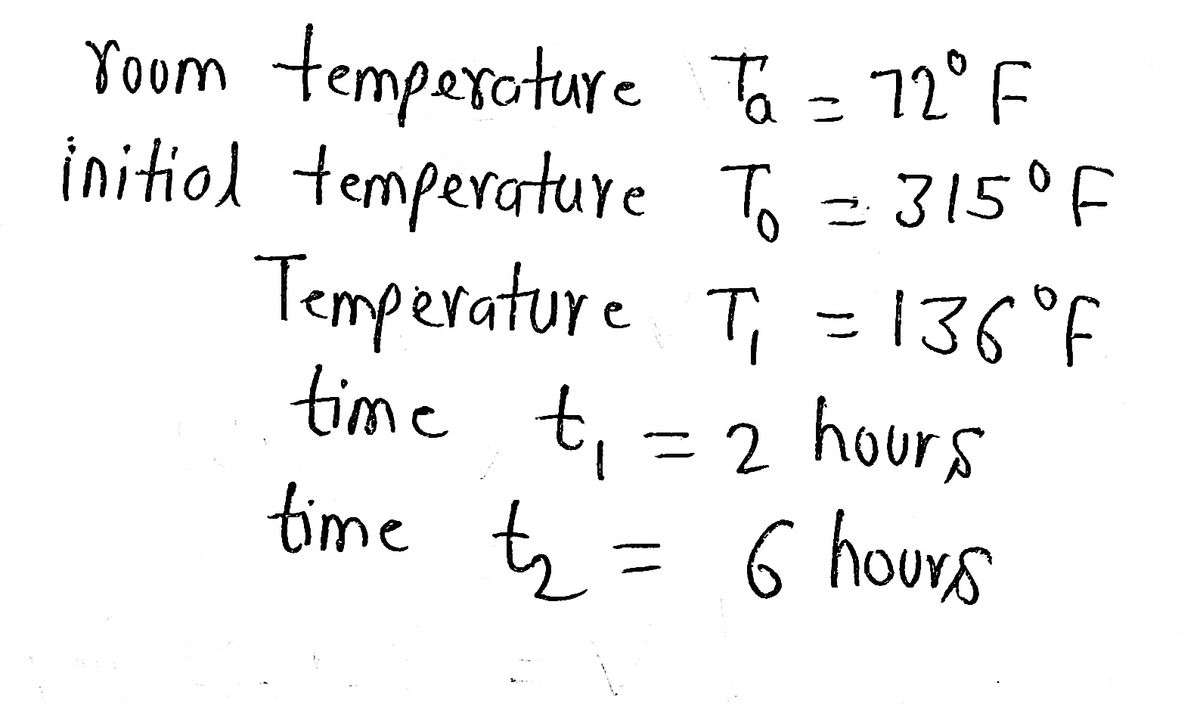 room temperature Ta = 72° F
initial temperature T0 = 315° F
Temperature T1 = 136° F
time t1 = 2 hours
time t2 = 6 hours